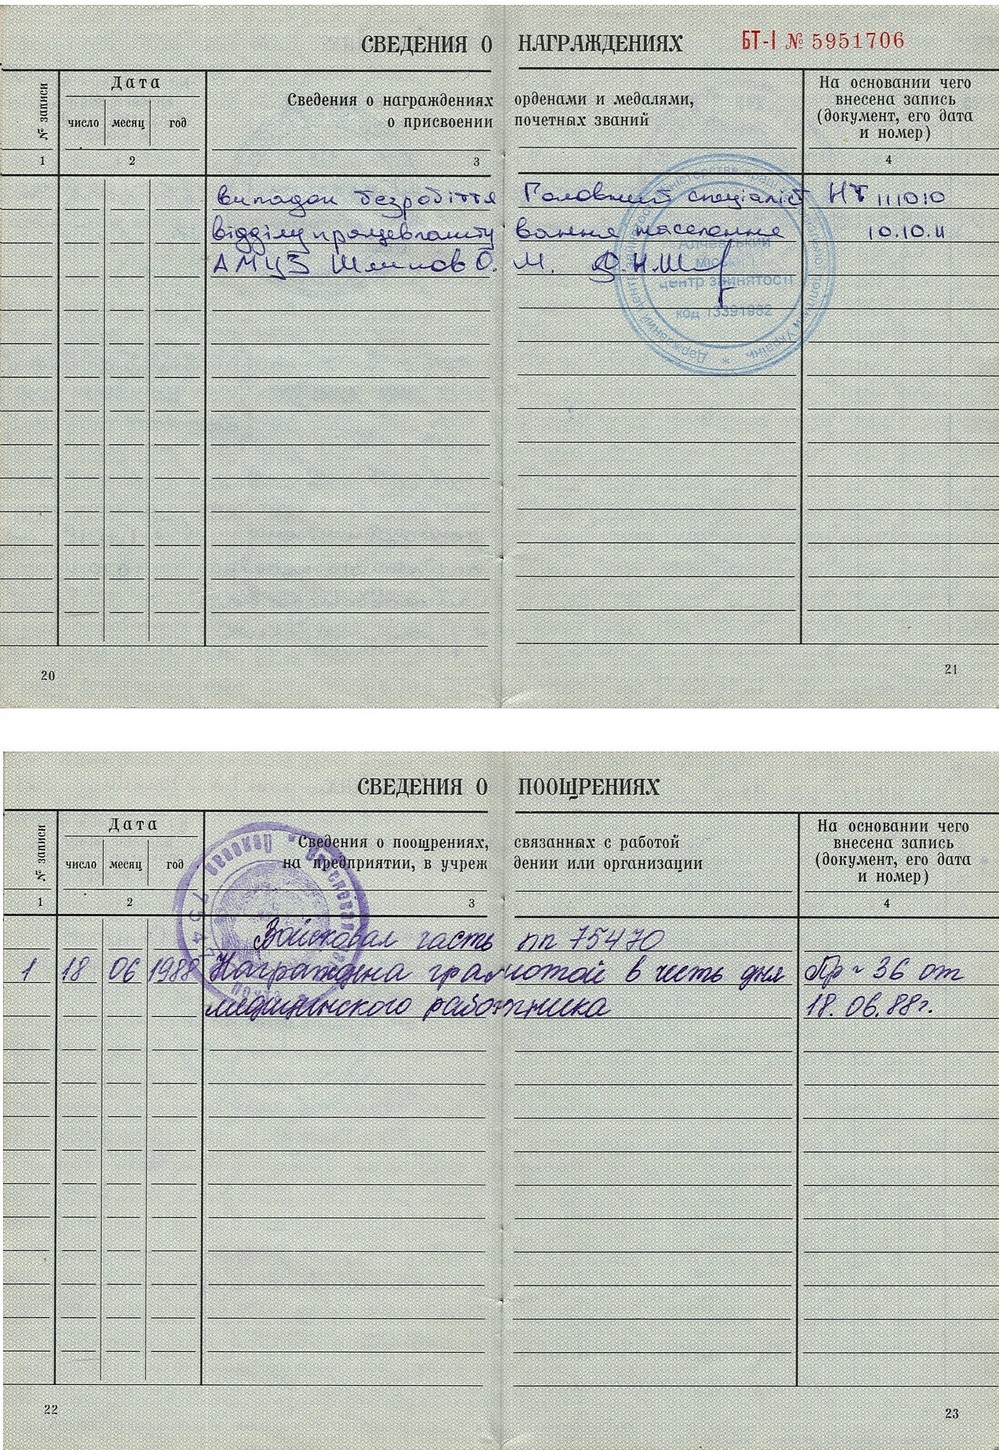 СВЕДЕНИЯ О НАГРАЖДЕНИЯХ БТ-I № 5951706
№ записи
Дата
число месяц год
Сведения о награждениях орденами и медалями,
о присвоении почетных званий
На основании чего
внесена запись
(документ, его дата
и номер)
1 2 3 4
випадок безробіття Головний спеціаліст НТ 111010
відділу працевлашту вання населення 10.10.11
АМЦЗ О. М.
Алчевський
міський
центр зайнятості
код 13391982
20 21
СВЕДЕНИЯ О ПООЩРЕНИЯХ
№ записи
Дата
число месяц год
Сведения о поощрениях, связанных с работой
на предприятии, в учреж дении или организации
На основании чего
внесена запись
(документ, его дата
и номер)
1 2 3 4
Войсковая часть пп 75470
1 18 06 1988 Награждена грамотой в честь дня Пр № 36 от
медицинского работника 18.06.88г.
22 23